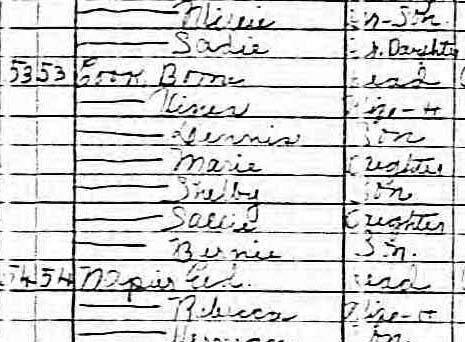 Millie Gr-Son
Sadie Gr. Daughter
53 53 Cook Boon Head
Wife-H
Dennis Son
Marie Daughter
Shelby Son
Sallie Daughter
Bernie Son
54 54 Napier Ed. Head
Rebecca Wife-H
Herman Son